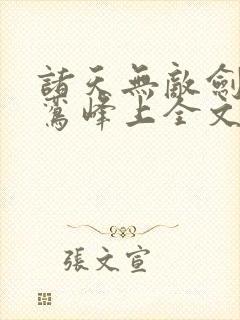 諸天無敵劍
鸞峰上全文
張文宣